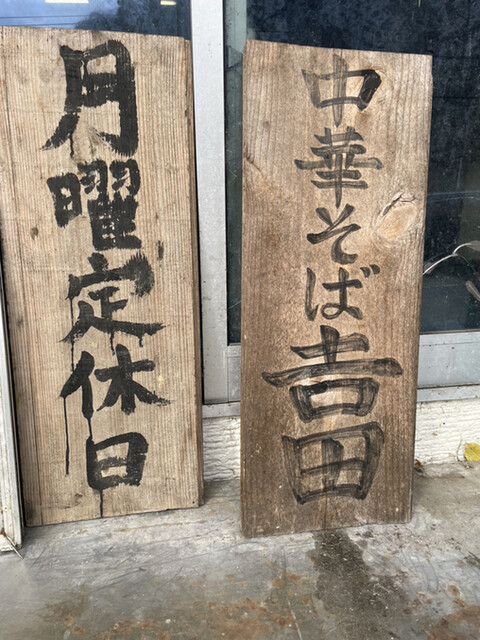 中華そば𠮷田
月曜定休日